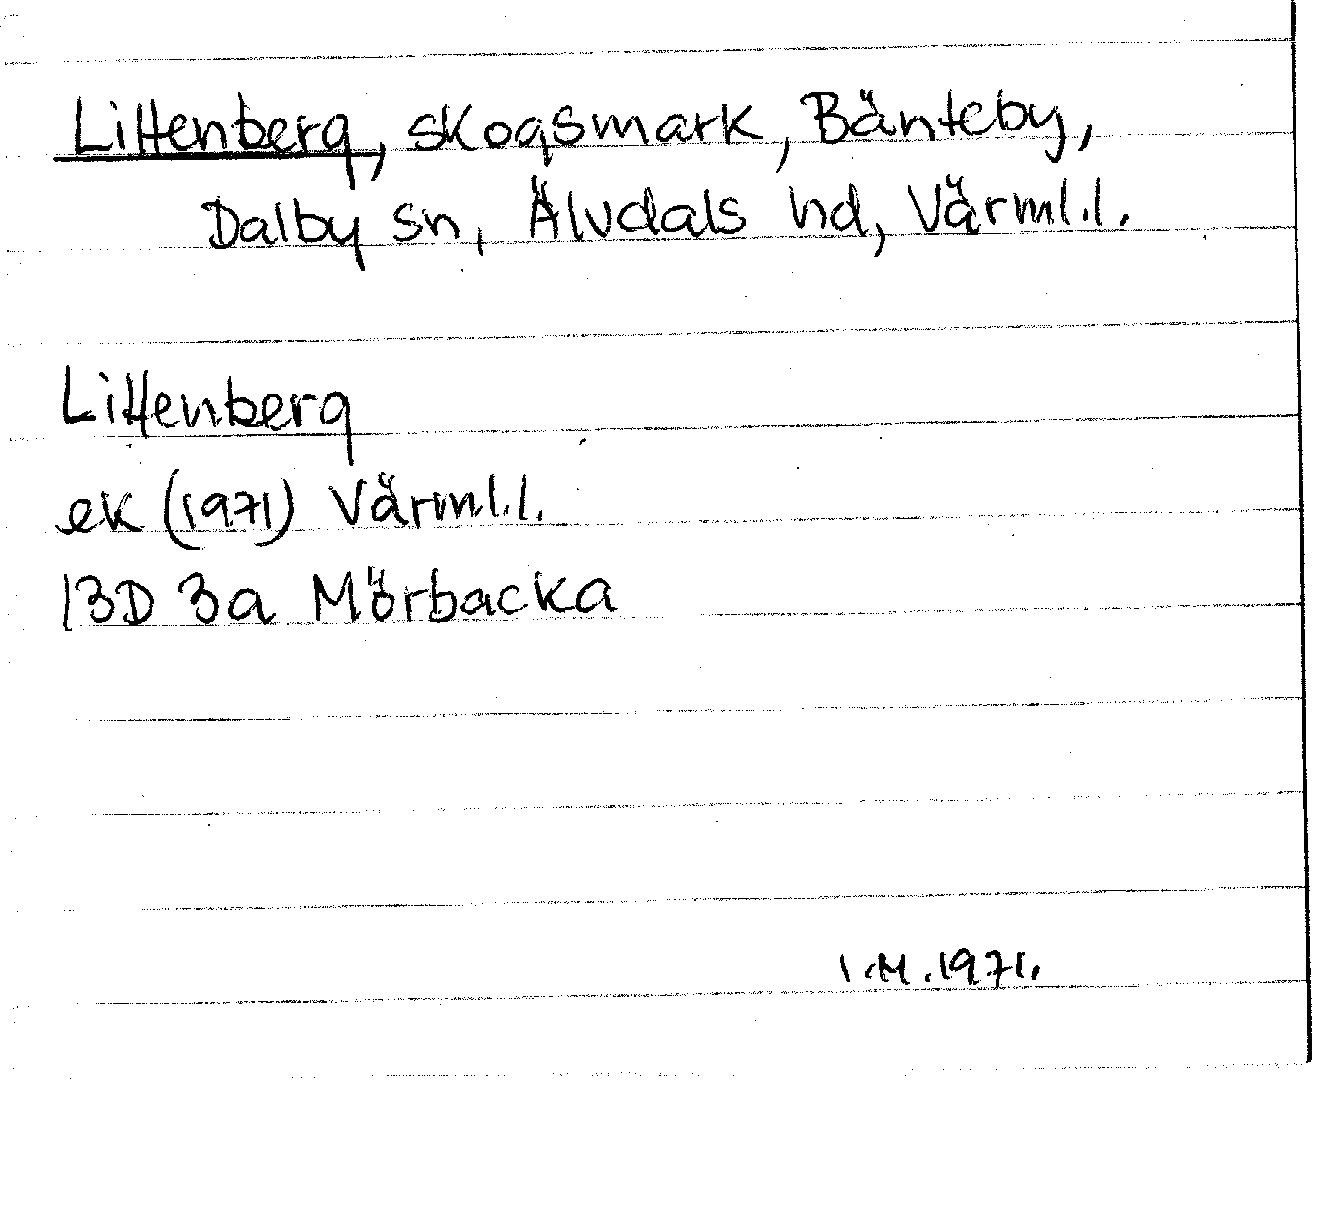 Littenberg, skogsmark, Bänteby,
Dalby sn, Älvdals hd, Värml.l.
Littenberg
ek (1971) Värml.l.
13D 3a Mörbacka
I.M.1971.